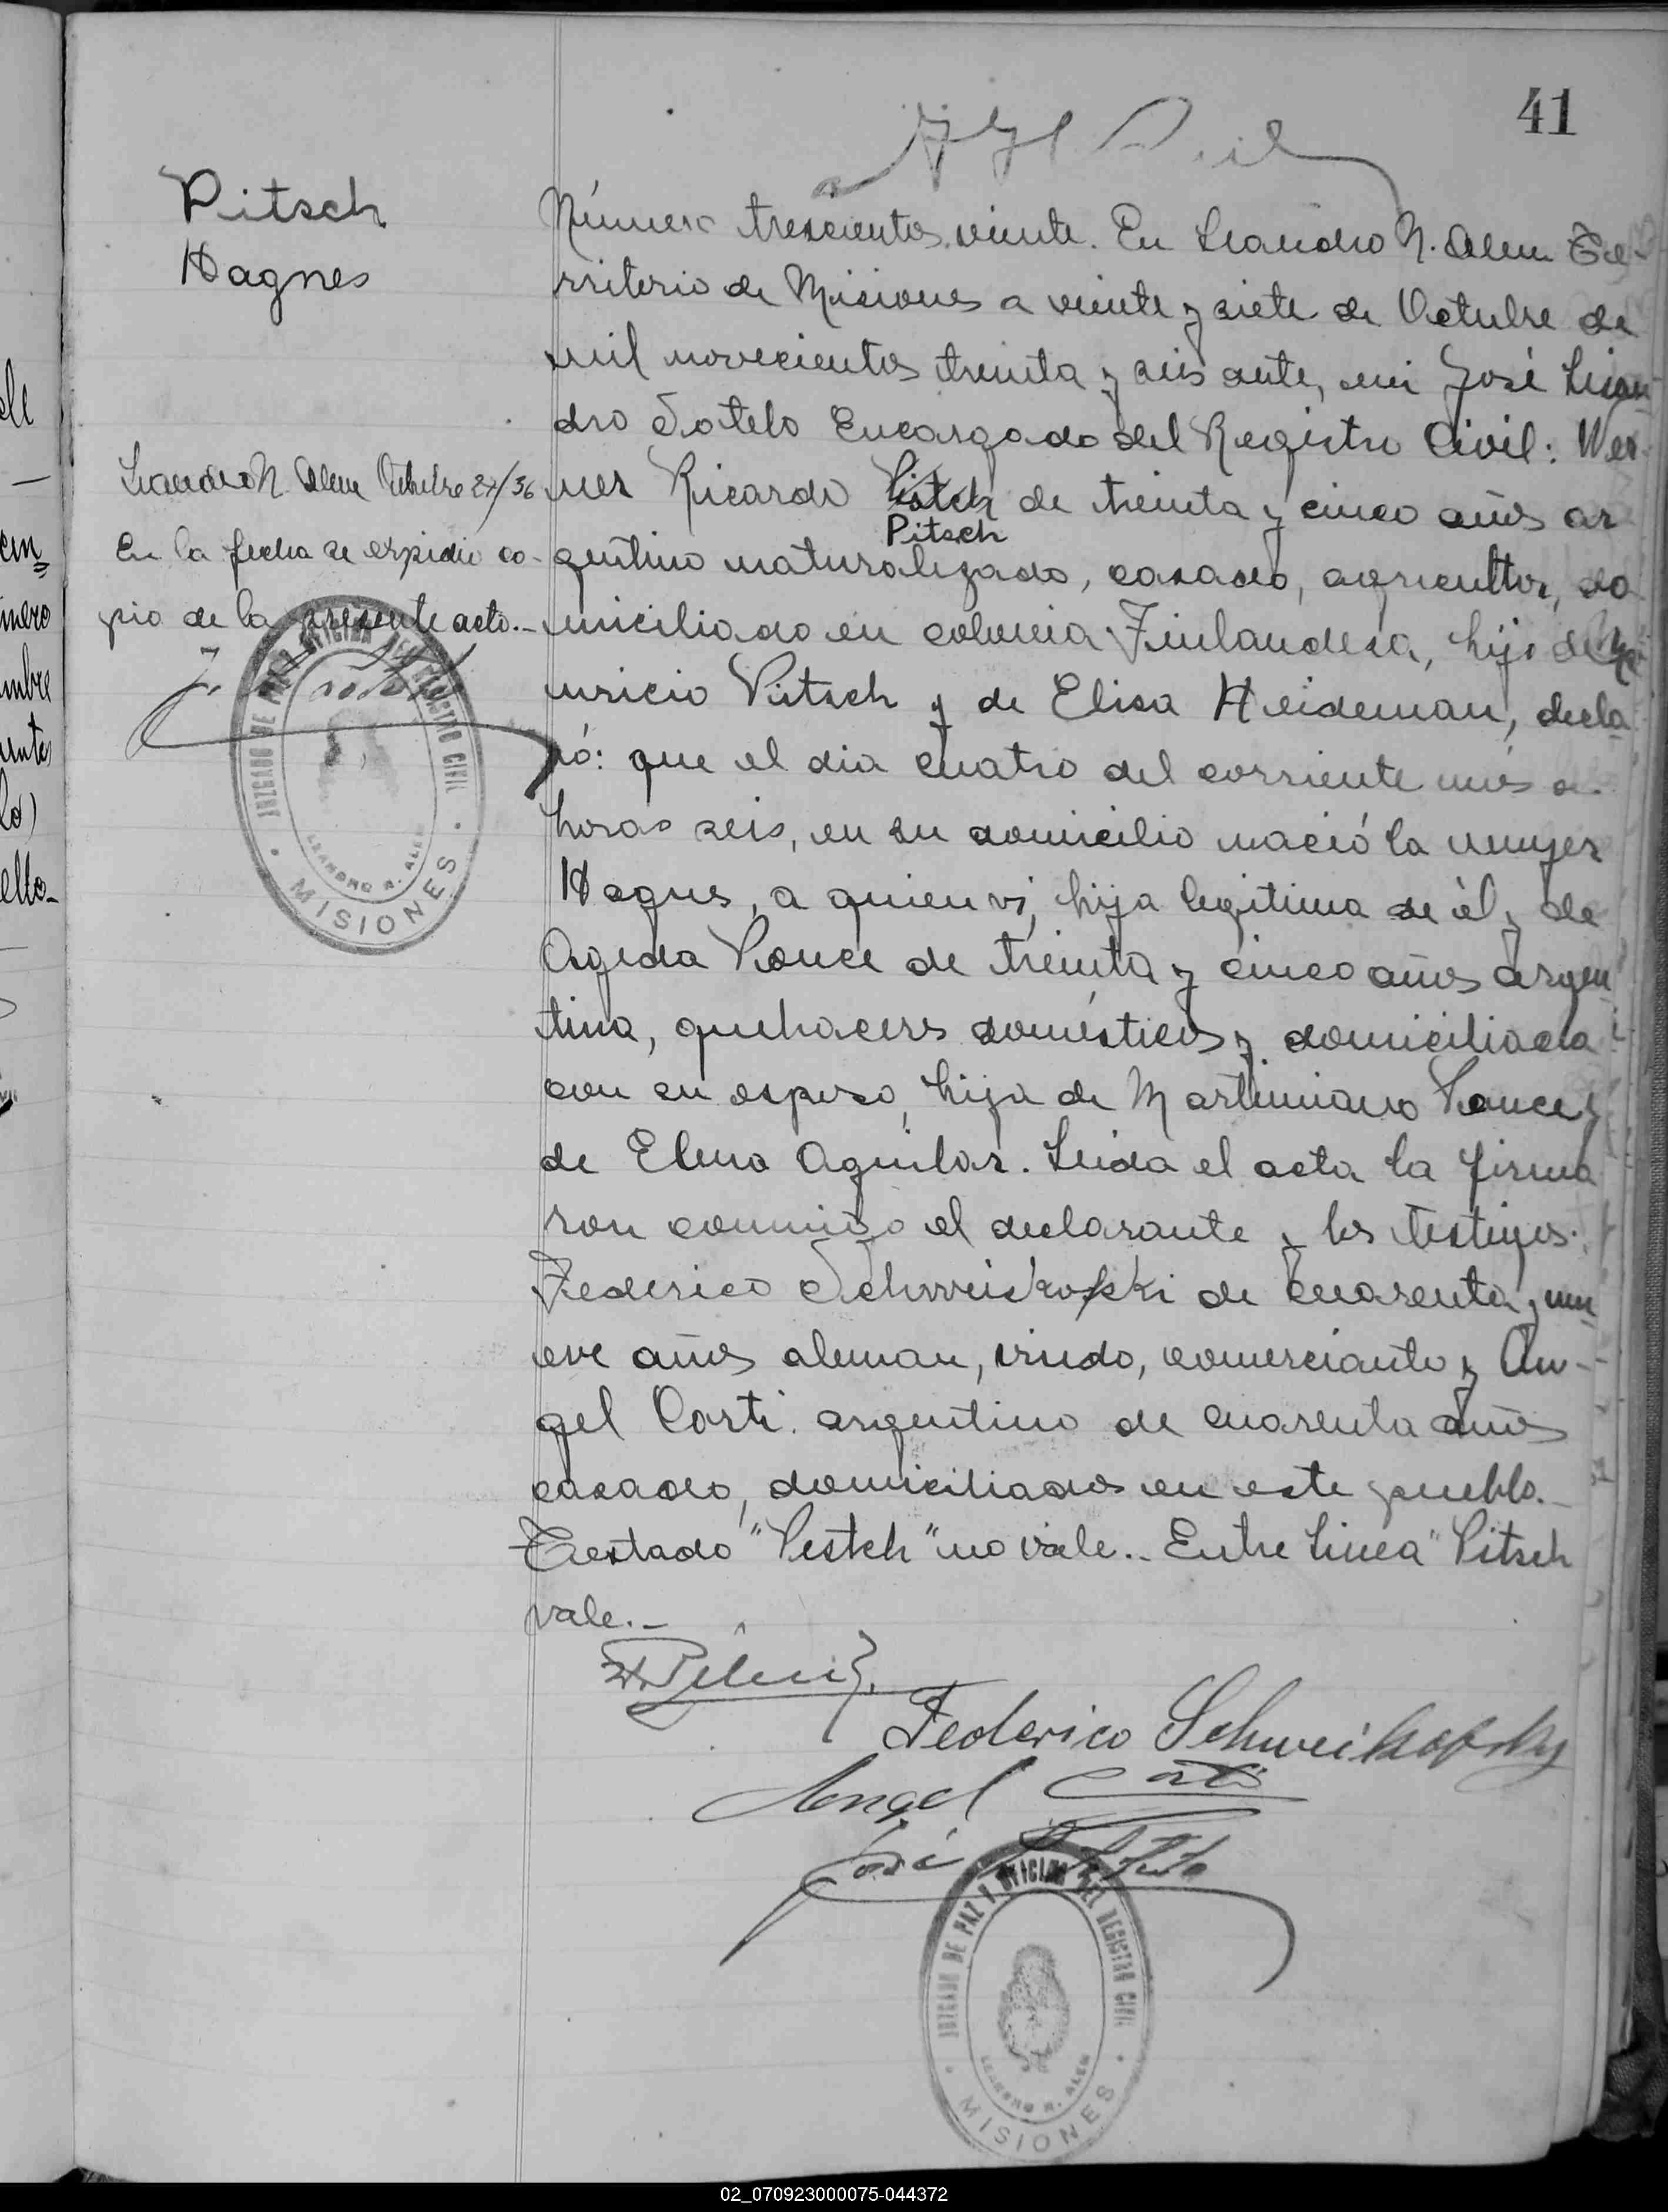 41
Pitsch
Hagnes
Número trescientos veinte. En Leandro N. Alem Te-
rriterio de Misiones a veinte y siete de Octubre de
mil novecientos treinta y seis ante, mi José Lisan-
dro Sotelo Encargado del Registro Civil: Wer-
ner Ricardo Pistch de treinta y cinco años ar
Pitsch
gentino naturalizado, casado, agricultor, do
miciliado en colonia Finlandesa, hijo de
uricio Pitsch y de Elisa Heideman, decla
ró: que el dia cuatro del corriente mes a
horas seis, en su domicilio nació la mujer
Hagnes, a quien vi, hija legitima de él y de
Ageda Ponce de treinta y cinco años argen
tina, quehaceres domésticos y domiciliada
con su esposo, hija de Martiniano Ponce y
de Elena Aguilar. Leida el acta la firma
ron conmigo el declarante y los testigos.
Federico Schweiskofski de cuarenta y nu
eve años aleman, viudo, comerciante y An-
gel Corti. argentino de cuarenta años
casado, domiciliados en este pueblo.-
Testado "Pestch" no vale.- Entre Linea "Pitsch
vale.-
Leandro N. Alem Octubre 27/36
En la fecha se expidio co-
pia de la presente acta.-
JUZGADO DE PAZ Y OFICINA DEL REGISTRO CIVIL
LEANDRO N. ALEM
MISIONES
Federico Schweikofsky
Angel Corti
José L Sotelo
JUZGADO DE PAZ Y OFICINA DEL REGISTRO CIVIL
LEANDRO N. ALEM
MISIONES
02_070923000075-044372